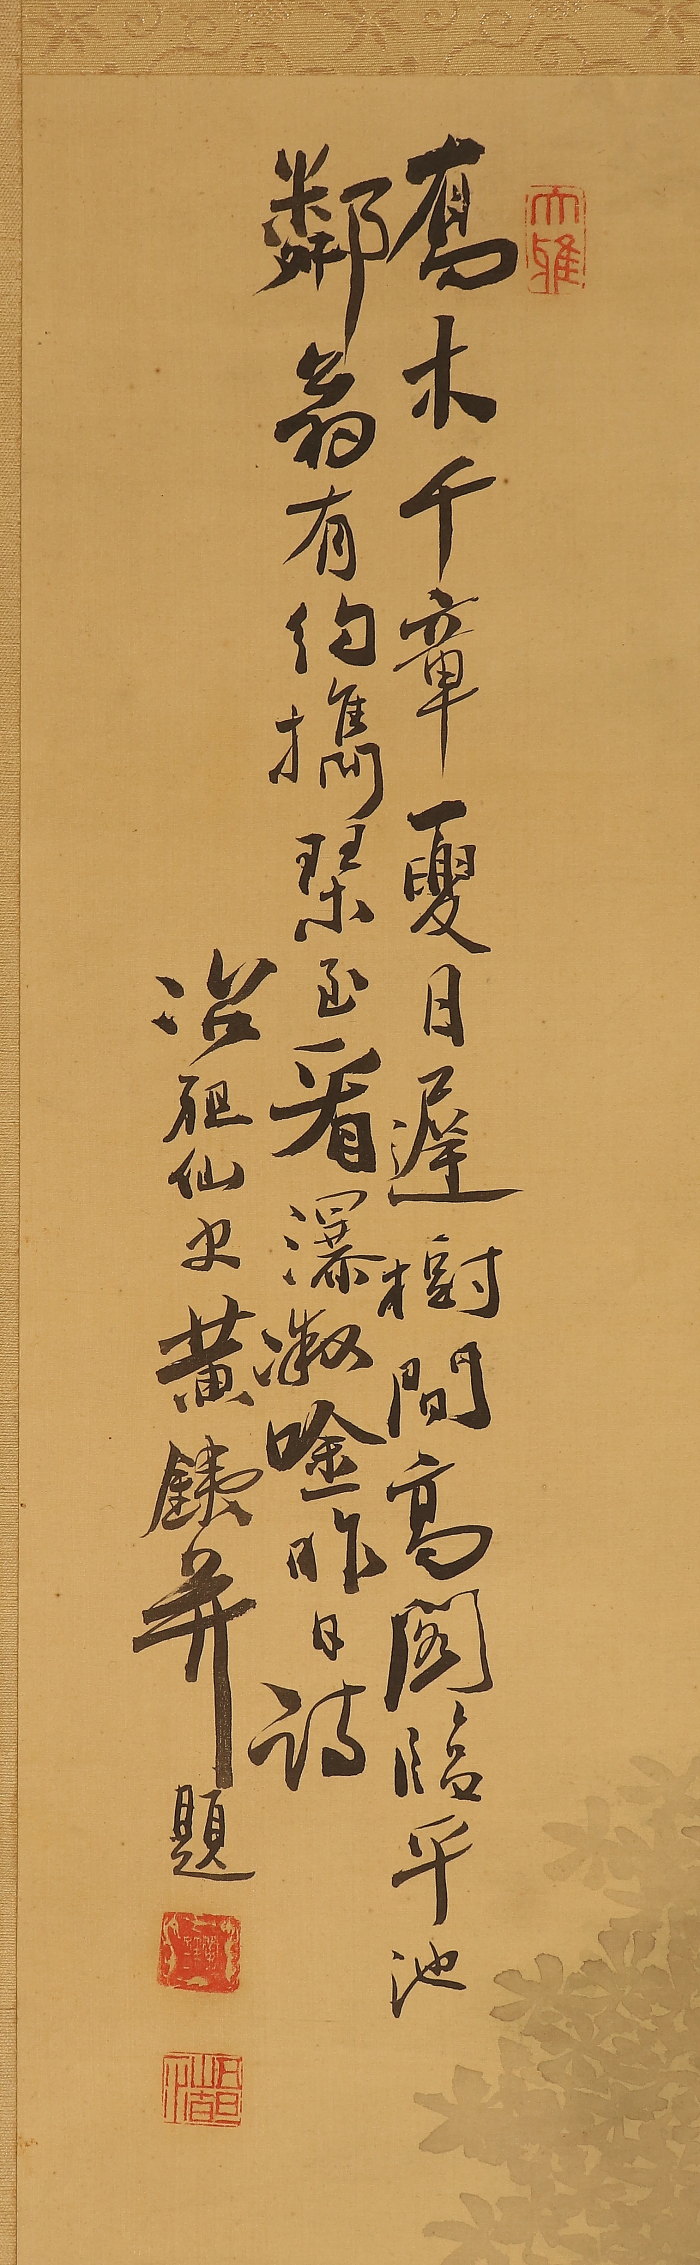 大雅
喬木千章夏日遲樹間高閣臨平池
鄰翁有約攜琴至看瀑漱唫昨日詩
沼仙史黄鐵并題